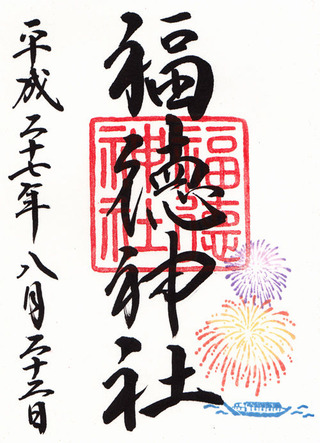 福徳神社
福徳神社
平成二十七年八月二十二日